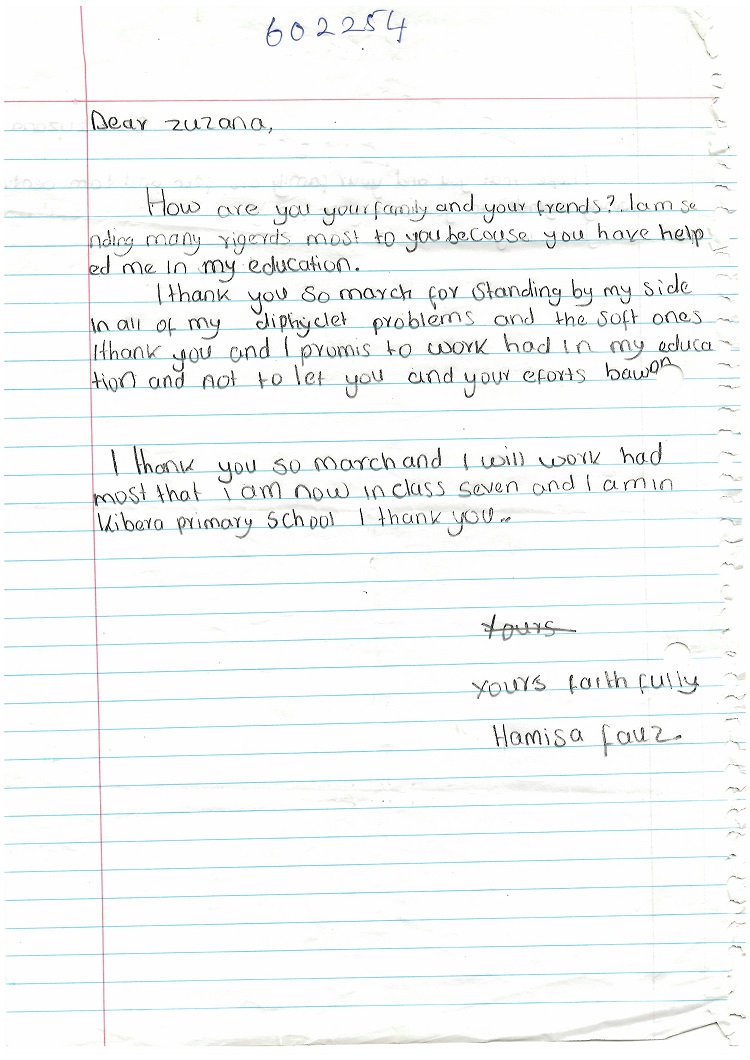 602254
Dear zuzana,
How are you your family and your frends?. Iam se
nding many rigerds most to you becouse you have help
ed me in my education.
I thank you so march for standing by my side
in all of my diphyclet problems and the soft ones
Ithank you and I promis to work had in my educa
tion and not to let you and your eforts bawon
I thank you so march and I will work had
most that I am now in class seven and I am in
Kibera primary school I thank you..
Yours
Yours faith fully
Hamisa fauz.